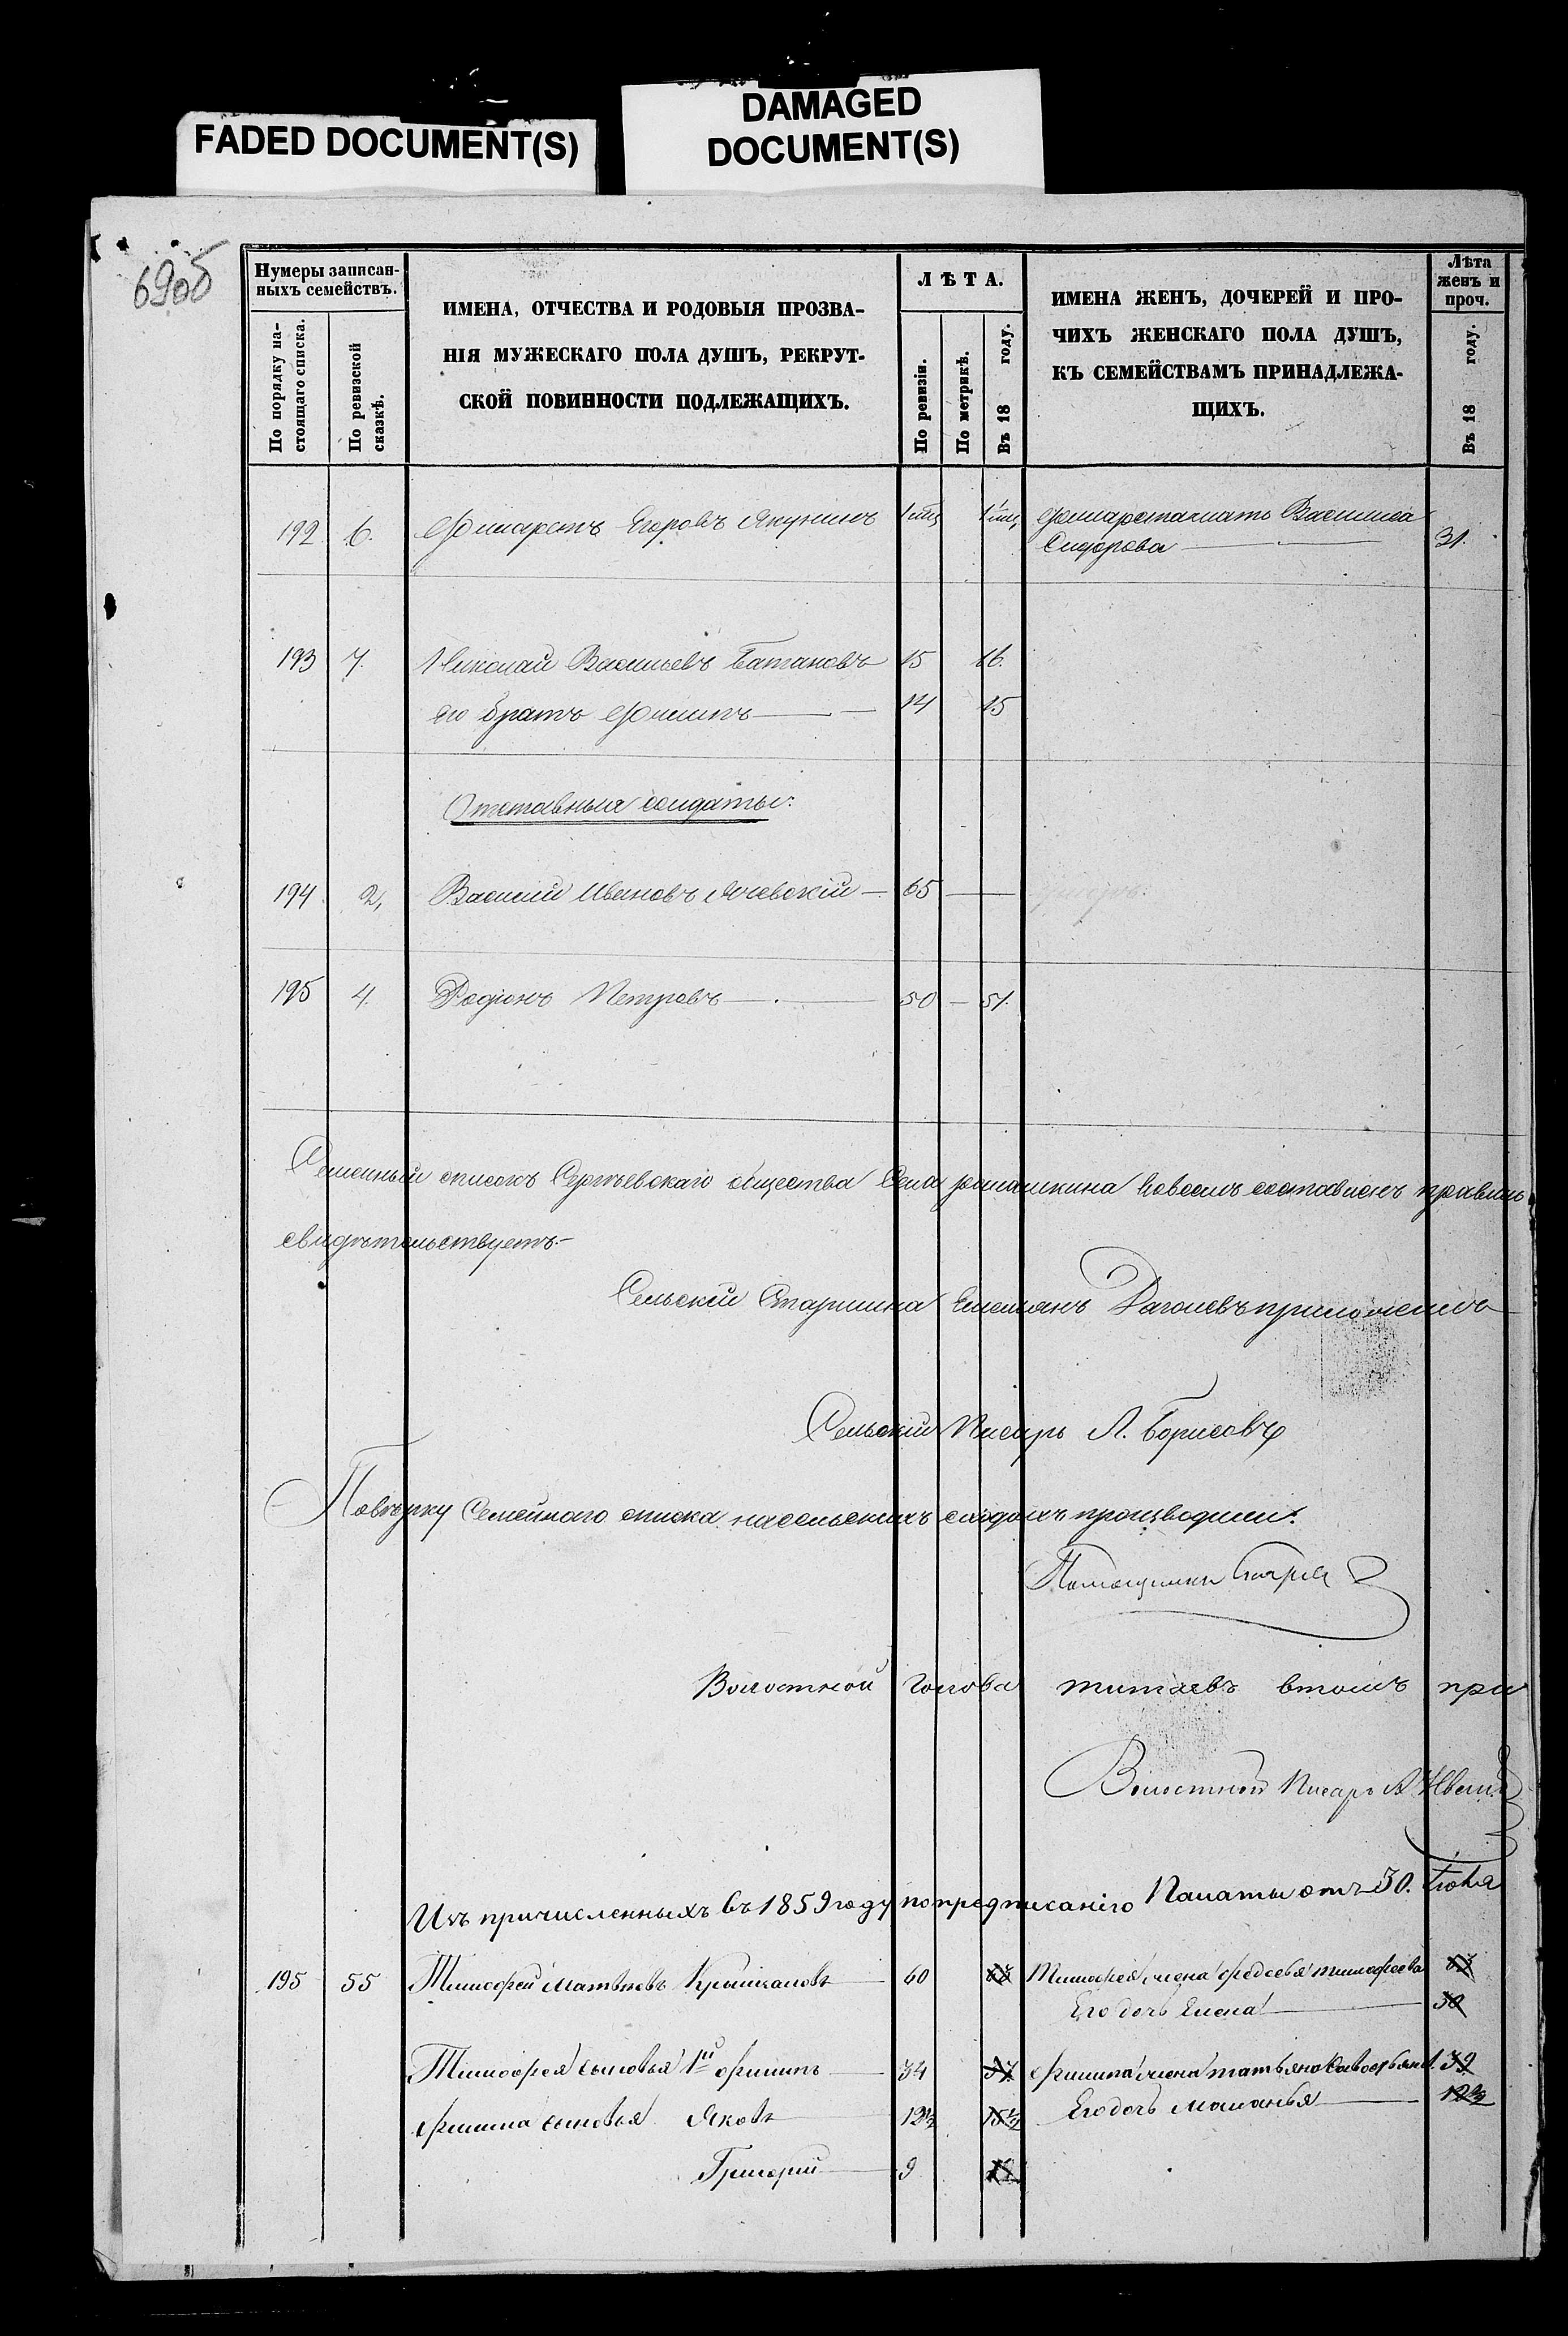 FADED DOCUMENT(S)
DAMAGED
DOCUMENT(S)
69об
Нумеры записан-
ныхъ семействъ.
По порядку на-
стоящаго списка.
По ревизской
сказкѣ.
ИМЕНА, ОТЧЕСТВА И РОДОВЫЯ ПРОЗВА-
НІЯ МУЖЕСКАГО ПОЛА ДУШЪ, РЕКРУТ-
СКОЙ ПОВИННОСТИ ПОДЛЕЖАЩИХЪ.
ЛѢТА.
По ревизіи.
По метрикѣ.
Въ 18 году.
ИМЕНА ЖЕНЪ, ДОЧЕРЕЙ И ПРО-
ЧИХЪ ЖЕНСКАГО ПОЛА ДУШЪ,
КЪ СЕМЕЙСТВАМЪ ПРИНАДЛЕЖА-
ЩИХЪ.
Лѣта
женъ и
проч.
Въ 18 году.
192 6. Филаретъ Егоровъ Якунинъ Филарета мать Василиса
Сидорова 31.
193 7. Николай Васильевъ Батановъ 15 16.
его братъ Филипъ 14 15
Отставныя солдаты:
194 2, Василий Ивановъ 65
195 4. Родіонъ Петровъ 50 51.
Семейный списокъ Сергѣевскаго общества Села составленъ
свидѣтельствуетъ.
Сельскій Старшина Емельянъ приложилъ
Сельскій Писарь Л. Борисовъ
Повѣрку Семейнаго списка на сельскихъ сходахъ производили:
Помощникъ
Волостной голова титаевъ втомъ при
Волостной Писарь
Изъ причисленныхъ въ 1859 году по предписанію Палаты отъ 30. Іюля
195 55 Тимофей Матвѣевъ 60 63 Тимофея жена федосья тимофеева 63
Его дочь Елена 30
Тимофея сыновья 1й филипъ 34 37 филипа жена татьяна 39
филипа сыновья Яковъ 12½ 15½ Его дочь маланья
Григорій 9